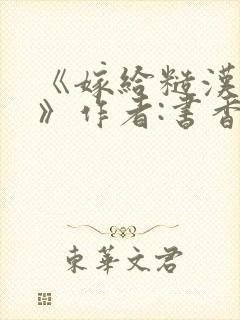 《嫁给糙汉
》作者:书香
東華文君